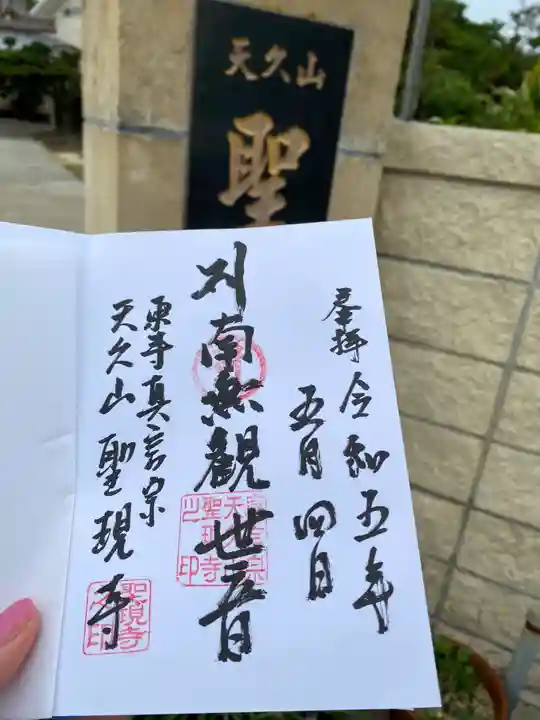 天久山
聖
奉拝 令和五年
五月四日
南無観世音
東寺真言宗
天久山 聖現寺
聖現寺